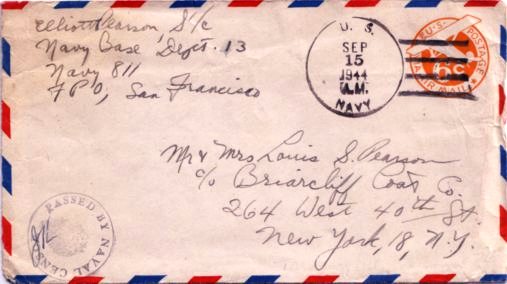 Elliott Pearson, S/c
Navy Base, Dept. 13
Navy 811
F P O, San Francisco
U. S.
SEP
15
1944
A.M.
NAVY
U.S. POSTAGE
6c
AIR MAIL
Mr & Mrs Louis S. Pearson
c/o Briarcliff Coat Co.
264 West 40th St.
New York, 18, N.Y.
PASSED BY NAVAL CENSOR